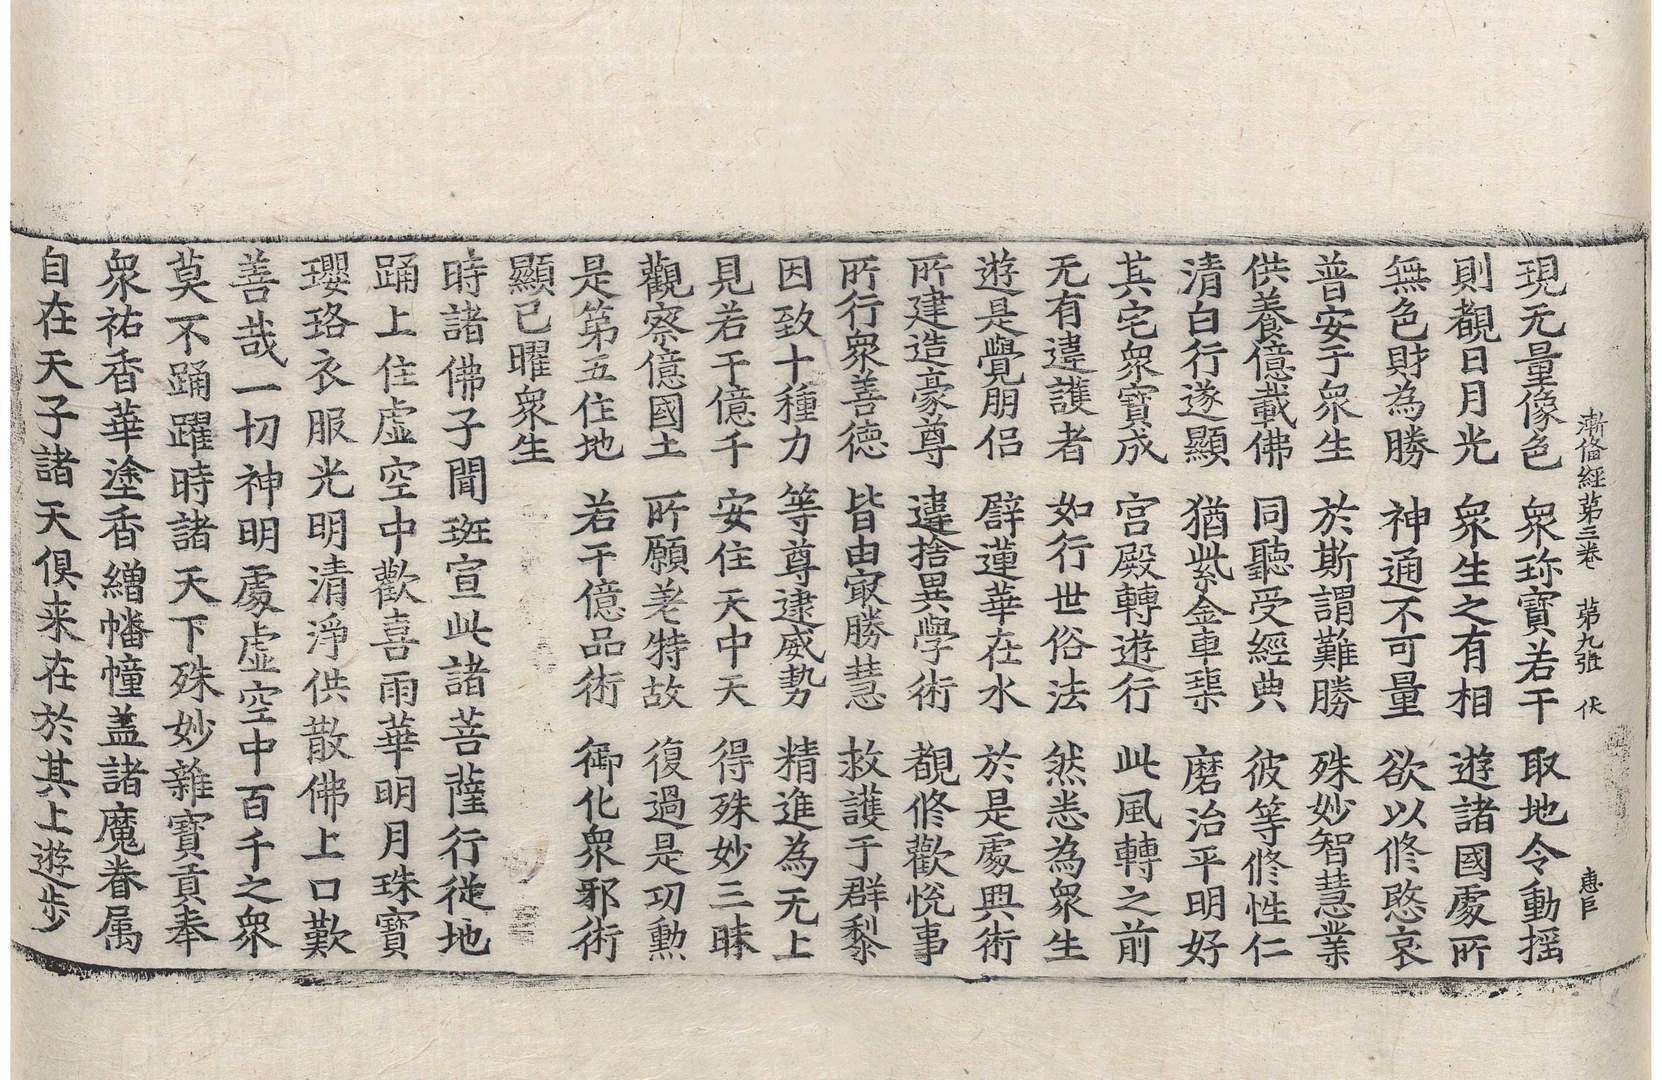 漸俻經第三卷 第九張 伏 惠巨
現无量像色 衆珎寶若干 取地令動揺
則覩日月光 衆生之有相 遊諸國處所
無色財為勝 神通不可量 欲以俢愍哀
普安于衆生 於斯謂難勝 殊妙智慧業
供養億載佛 同聽受經典 彼等俢性仁
清白行遂顯 猶紫金車𤦲 磨治平明好
其宅衆寶成 宫殿轉遊行 此風轉之前
无有違護者 如行世俗法 然恙為衆生
遊是覺朋侣 譬蓮華在水 於是處興術
所建造豪尊 違捨異學術 覩俢歡悅事
所行衆善德 皆由㝡勝慧 救護于群黎
因致十種力 等尊逮威勢 精進為无上
見若干億千 安住天中天 得殊妙三昧
觀察億國土 所願㺯特故 復過是功勲
是第五住地 若干億品術 御化衆邪術
顯已曜衆生
時諸佛子聞班宣此諸菩薩行從地
踊上住虛空中歡喜雨華明月珠寶
瓔珞衣服光明清淨供散佛上口歎
善哉一切神明處虛空中百千之衆
莫不踊躍時諸天下殊妙雜寶貢奉
衆祐香華塗香繒幡幢盖諸魔眷属
自在天子諸天俱来在於其上遊步